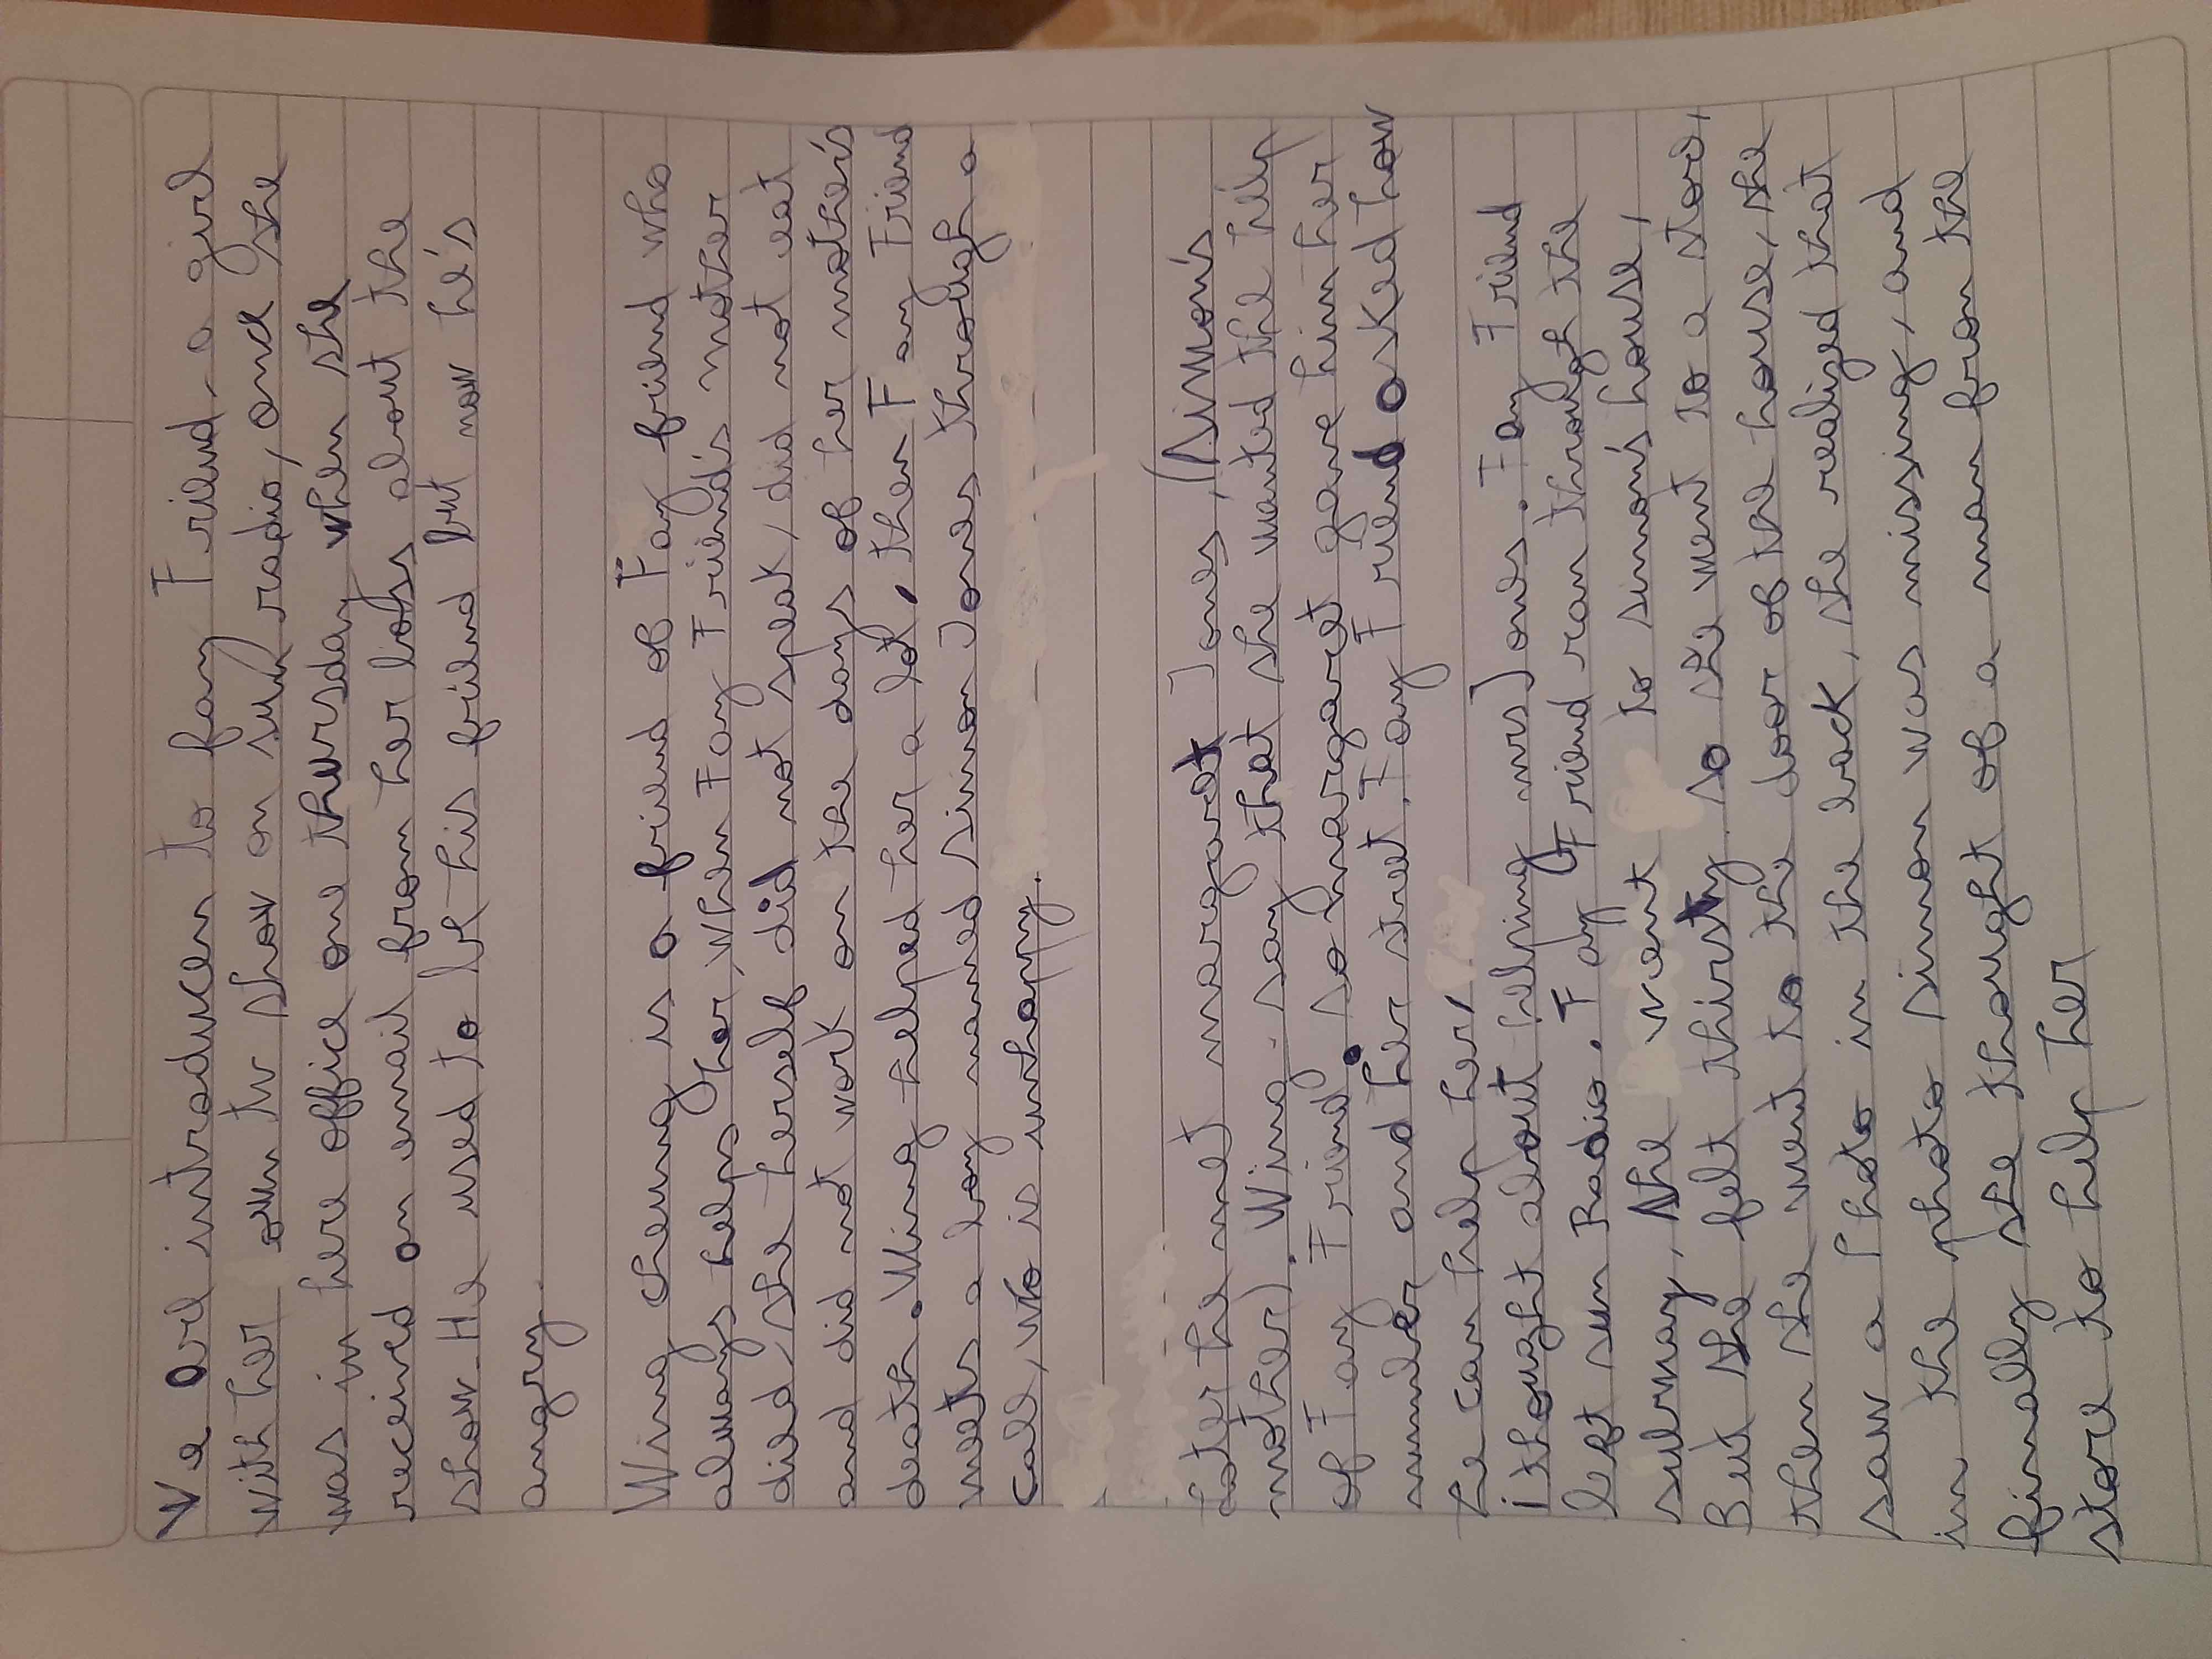 We are introduces to fay Friend, a girl
with her own tv show on sun radio, and she
was in here office one thursday when she
received an email from her loys about the
show. He used to be his friend but now he's
angry.
Wing cheung is a friend of Fay friend who
always helps her, when Fay Friend's mother
died, she herself did not speak, did not eat
and did not work on the days of her mother's
death. Wing helped her a lot, then Fay Friend
meets a boy named simon Jones through a
call, who is unhappy.
Later he met margaret Jones, (simon's
mother). Wing say that she wanted the help
of Fay Friend, so margaret gave him her
number and her street, Fay Friend asked how
he can help her,
i thought about helping mrs Jones. Fay Friend
left sun Radio. Fay Friend ran through the
subway, she went to simon's house,
But she felt thirsty, so she went to a store,
then she went to the door of the house, she
saw a photo in the back, she realized that
in the photo simon was missing, and
finally she thought of a man from the
store to help her